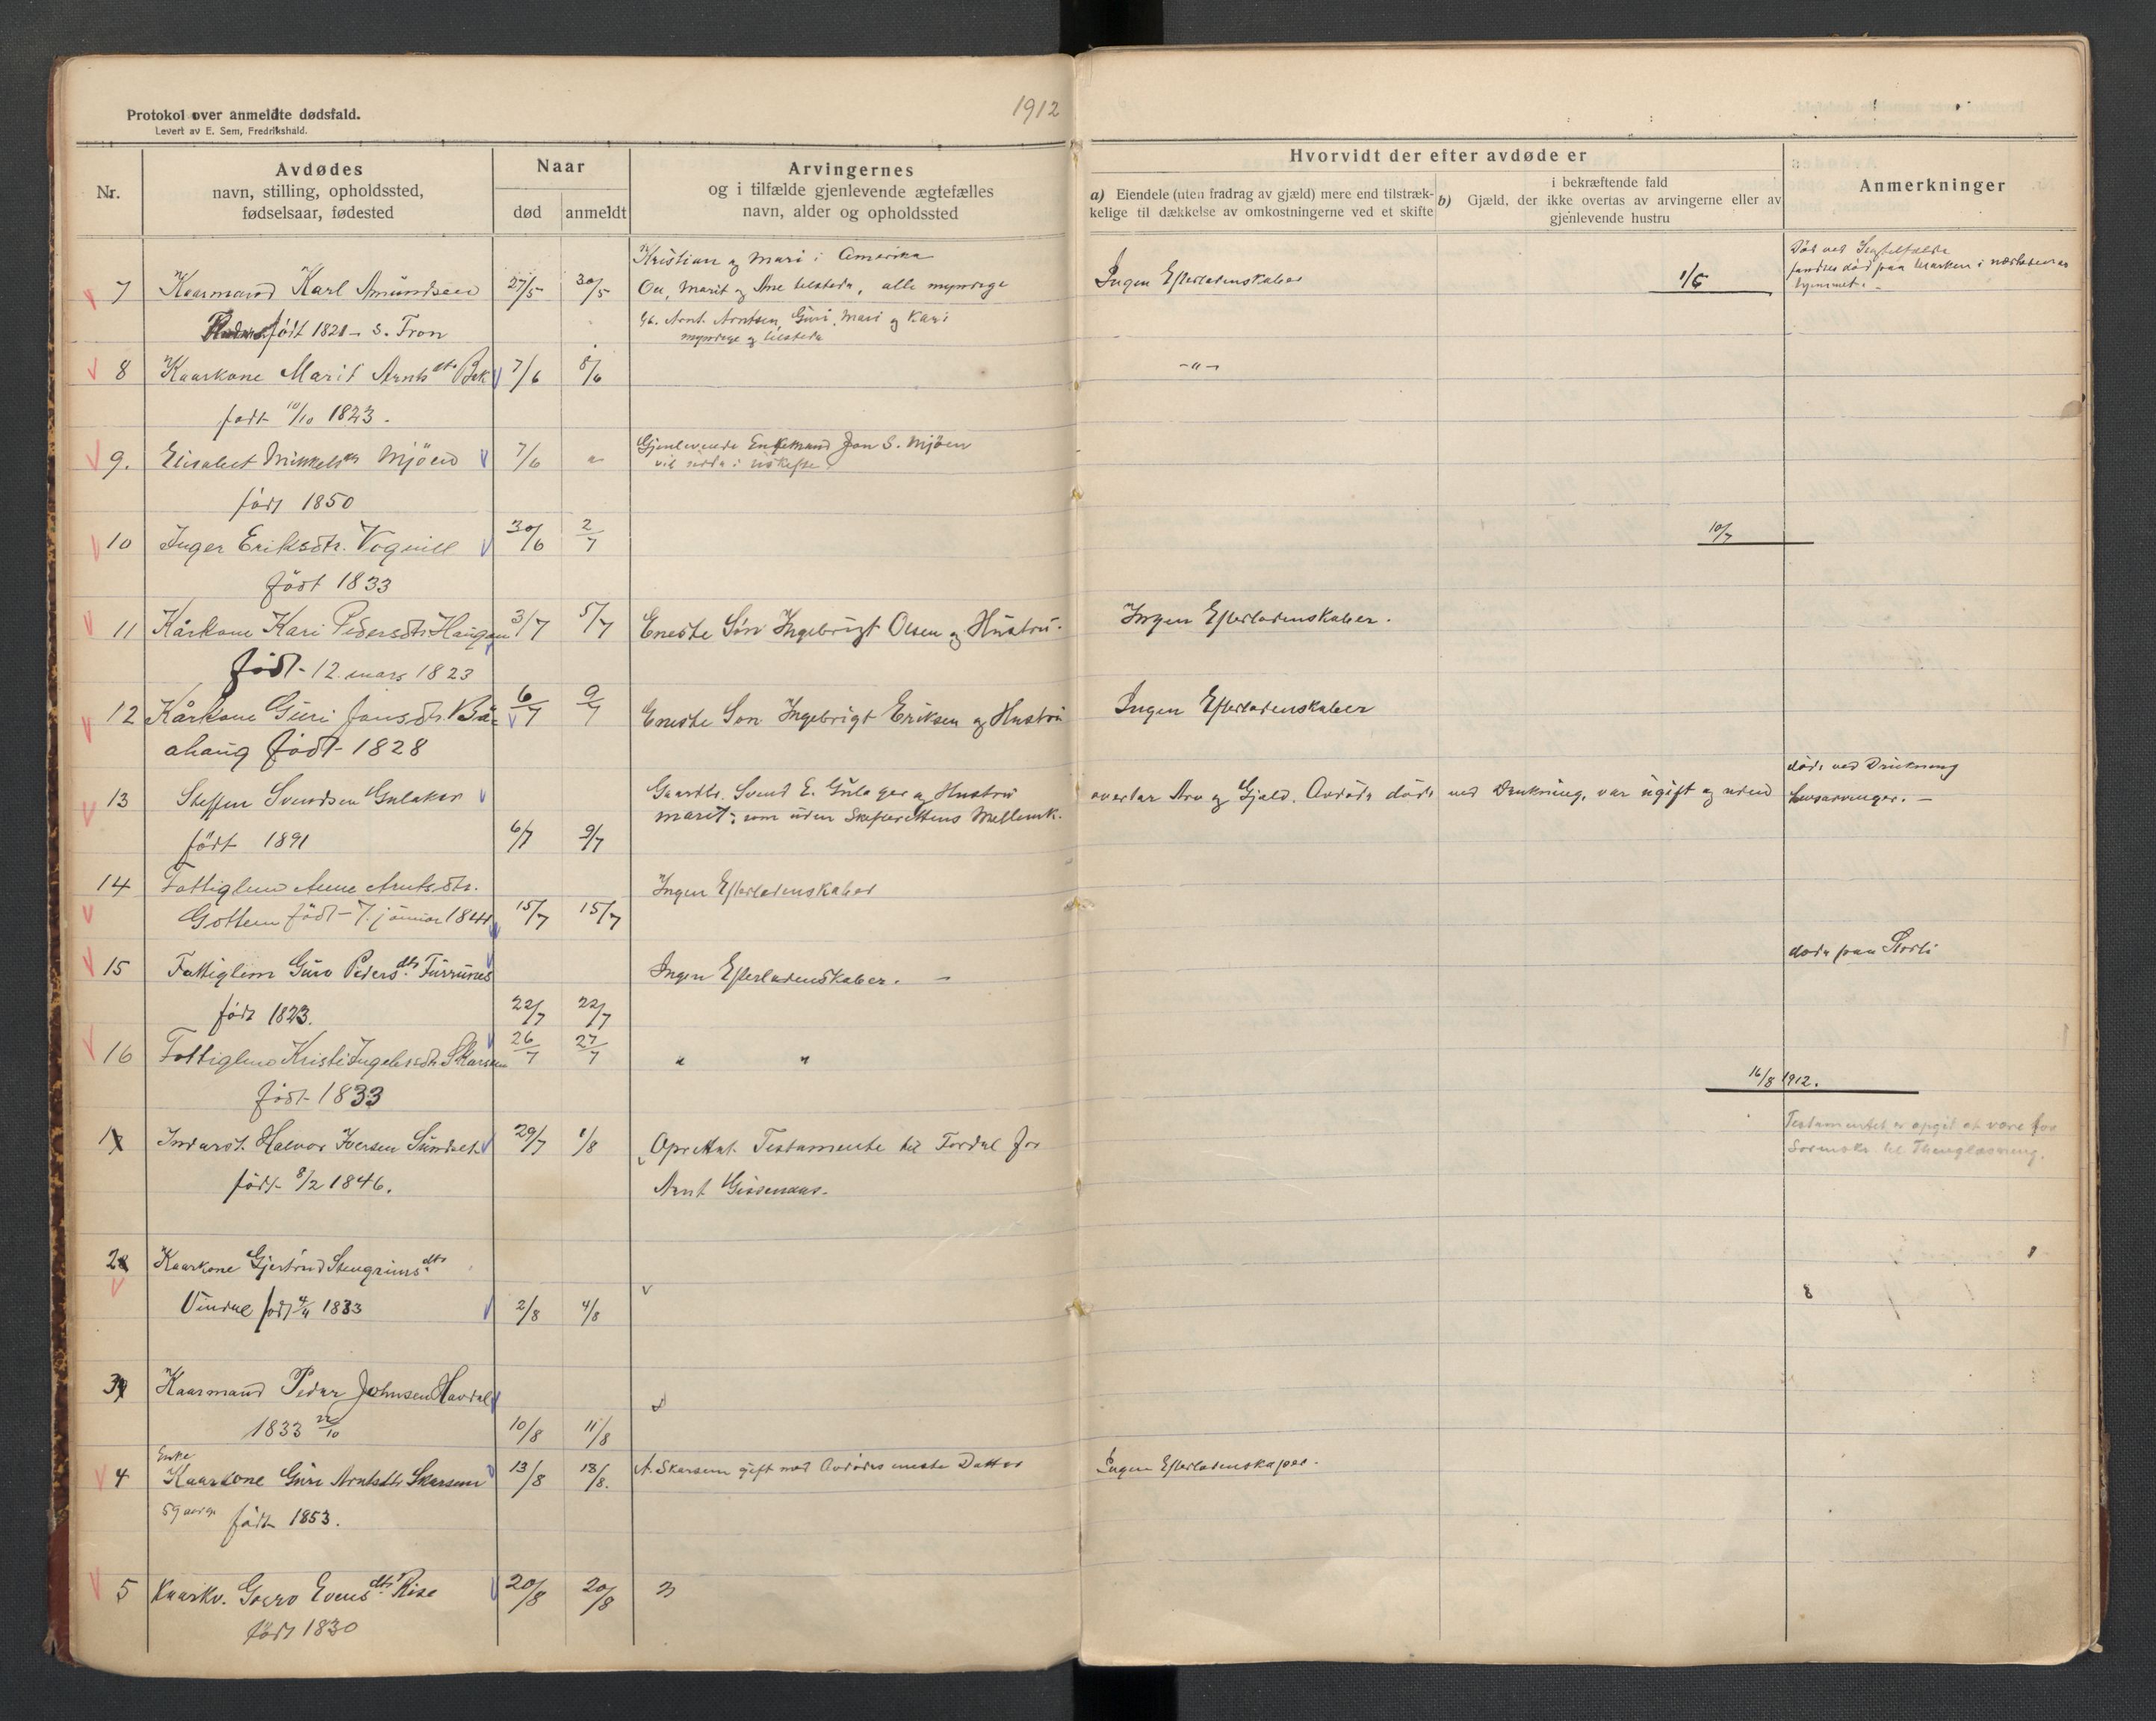 Protokol over anmeldte dødsfald.
Levert av E. Sem, Fredrikshald.
1912
Nr.
Avdødes
navn, stilling, opholdssted,
fødselsaar, fødested
Naar
død
anmeldt
Arvingernes
og i tilfælde gjenlevende ægtefælles
navn, alder og opholdssted
Hvorvidt der efter avdøde er
a) Eiendele (uten fradrag av gjæld) mere end tilstræk-
kelige til dækkelse av omkostningerne ved et skifte
i bekræftende fald
b) Gjæld, der ikke overtas av arvingerne eller av
gjenlevende hustru
Anmerkninger
Kristian og Mari i Amerika
7 Kaarmand Karl Amundsen 27/5 30/5 Ou, Marit og Ane tilstede, alle myndige Ingen Efterladenskaber 1/6
fandtes død paa Marken i nærheden av
hjemmet. -
født 1821 - s. Tron
Gb. Arnt Arntsen, Guri, Mari og Kari
myndige og tilstede
8 Kaarkone Marit Arntsdtr Bak 7/6 8/6 - " -
født 10/10 1823.
9. Elisabet Mikkelsdtr Mjöen 7/6 " Gjenlevende Enkemand Jon S. Mjöen
vil sidde i uskifte
født 1850
10 Inger Eriksdtr. Vognill 30/6 2/7 10/7
født 1833
11 Kårkone Kari Pedersdtr Haugen 3/7 5/7 Eneste Sön Ingebrigt Olsen og Hustru. Ingen Efterladenskaber.
født - 12. mars 1823
12 Kårkone Guri Jonsdtr. Bæ- 6/7 9/7 Eneste Son Ingebrigt Eriksen og Hustru Ingen Efterladenskaber
ahaug født - 1828
13 Steffen Svendsen Gulaker
Gaardbr. Svend E. Gulager og Hustru
marit, som uden Skifterettens Mellemk. overtar Arv og Gjæld. Avdøde døde ved Drukning, var ugift og uden Livsarvinger. -
døde ved Drukning
født 1891 6/7 9/7
14 Fattiglem Anne Arntsdtr. Ingen Efterladenskaber
Gottem født - 7. januar 1844 15/7 15/7
15 Fattiglem Guro Pedersdtr. Furrunes Ingen Efterladenskaber. - døde paa Storli
født 1823. 22/7 22/7
16 Fattiglem Kristi Ingebrdtr. Skarsem 26/7 27/7 " "
16/8 1912.
født - 1833
1 Inderst. Halvor Iversen Sundset 29/7 1/8 Oprettet Testamente til Fordel for
Testamentet er opgit at være for
Sorenskr. til Thinglæsning.
født 8/2 1846. Arnt Gissenaas.
2 Kaarkone Gjertrud Stengrimsdtr
Vindal født 4/4 1833 2/8 4/8 8
3 Kaarmand Peder Johnsen Havdal
1833 22/10 10/8 11/8
Enke
4 Kaarkone Guri Arntsdtr Skarsem 13/8 13/8. A. Skarsem gift med Avdødes eneste Datter Ingen Efterladenskaper.
59 aar gl. født 1853.
5 Kaarkv. Goero Evensdtr Rise 20/8 20/8
født 1830